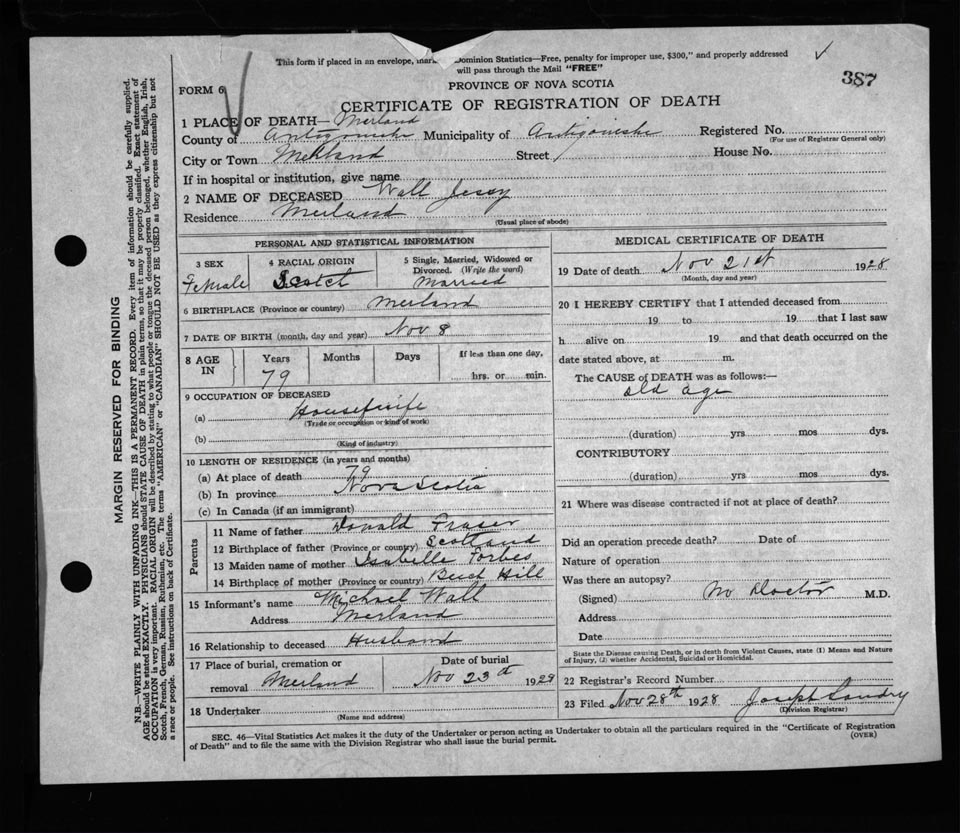 This form if placed in an envelope, mar Dominion Statistics—Free, penalty for improper use, $300," and properly addressed
will pass through the Mail "FREE"
387
PROVINCE OF NOVA SCOTIA
FORM 6
CERTIFICATE OF REGISTRATION OF DEATH
1 PLACE OF DEATH— Merland
County of Antigonishe Municipality of Antigonishe Registered No.
(For use of Registrar General only)
City or Town Merland Street House No.
If in hospital or institution, give name
2 NAME OF DECEASED Wall Jessy
Residence Merland
(Usual place of abode)
PERSONAL AND STATISTICAL INFORMATION
3 SEX 4 RACIAL ORIGIN 5 Single, Married, Widowed or
Divorced. (Write the word)
Female Scotch Married
6 BIRTHPLACE (Province or country) Merland
7 DATE OF BIRTH (month, day and year) Nov 8
8 AGE IN Years Months Days If less than one day,
79 hrs. or min.
9 OCCUPATION OF DECEASED
(a) Housewife
(Trade or occupation or kind of work)
(b)
(Kind of industry)
10 LENGTH OF RESIDENCE (in years and months)
(a) At place of death 79
(b) In province Nova Scotia
(c) In Canada (if an immigrant)
Parents
11 Name of father Donald Fraser
12 Birthplace of father (Province or country) Scotland
13 Maiden name of mother Isabelle Forbes
14 Birthplace of mother (Province or country) Beech Hill
15 Informant's name Michael Wall
Address Merland
16 Relationship to deceased Husband
17 Place of burial, cremation or Date of burial
removal Merland Nov 23th 1928
18 Undertaker
(Name and address)
MEDICAL CERTIFICATE OF DEATH
19 Date of death Nov 21st 1928
(Month, day and year)
20 I HEREBY CERTIFY that I attended deceased from
19 to 19 that I last saw
h alive on 19 and that death occurred on the
date stated above, at m.
The CAUSE of DEATH was as follows:—
old age
(duration) yrs mos dys.
CONTRIBUTORY
(duration) yrs mos dys.
21 Where was disease contracted if not at place of death?
Did an operation precede death? Date of
Nature of operation
Was there an autopsy?
(Signed) No Doctor M.D.
Address
Date
State the Disease causing Death, or in death from Violent Causes, state (1) Means and Nature
of Injury, (2) whether Accidental, Suicidal or Homicidal.
22 Registrar's Record Number
23 Filed Nov 28th 1928 Joseph Landry
(Division Registrar)
SEC. 46—Vital Statistics Act makes it the duty of the Undertaker or person acting as Undertaker to obtain all the particulars required in the "Certificate of Registration
of Death" and to file the same with the Division Registrar who shall issue the burial permit. (OVER)
MARGIN RESERVED FOR BINDING
N.B.—WRITE PLAINLY WITH UNFADING INK—THIS IS A PERMANENT RECORD. Every item of information should be carefully supplied.
AGE should be stated EXACTLY. PHYSICIANS should STATE CAUSE OF DEATH in plain terms, so that it may be properly classified. Exact statement of
OCCUPATION is very important. RACIAL ORIGIN will be described by stating to what people or tongue the deceased person belonged, whether English, Irish,
Scotch, French, German, Russian, Ruthenian, etc. The terms "AMERICAN" or "CANADIAN" SHOULD NOT BE USED as they express citizenship but not
a race or people. See instructions on back of Certificate.